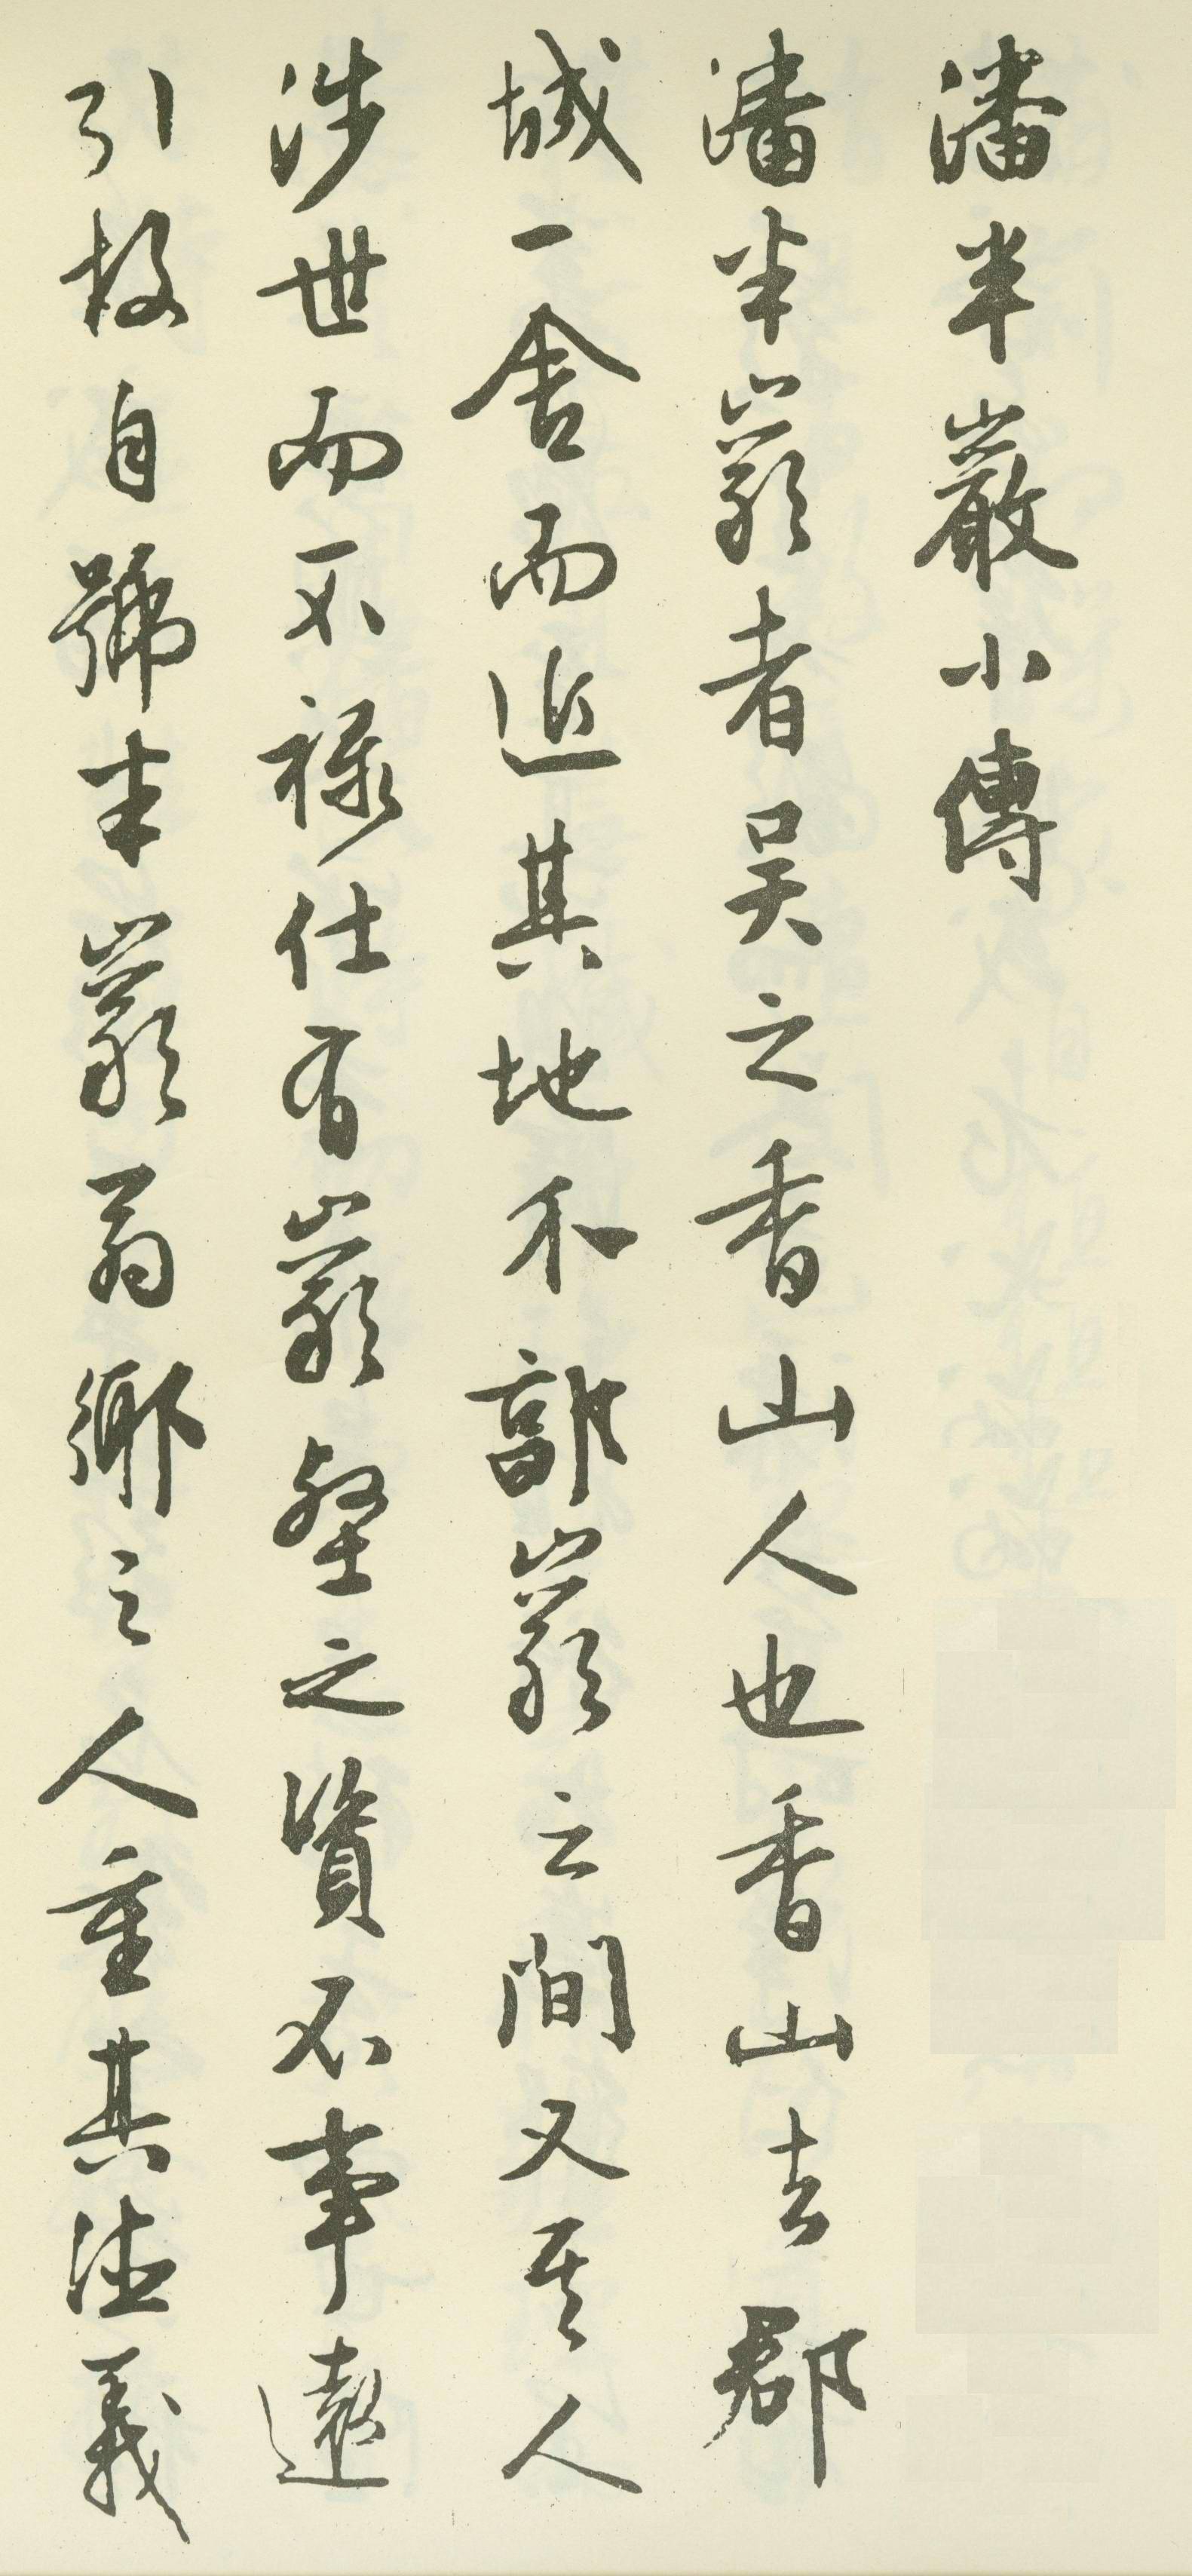 潘半巖小傳
潘半巖者吳之香山人也香山去郡
城一舍而近其地不離巖之間又其人
涉世而不祿仕有巖壑之資不事遠
引故自號半巖翁鄉之人重其德義